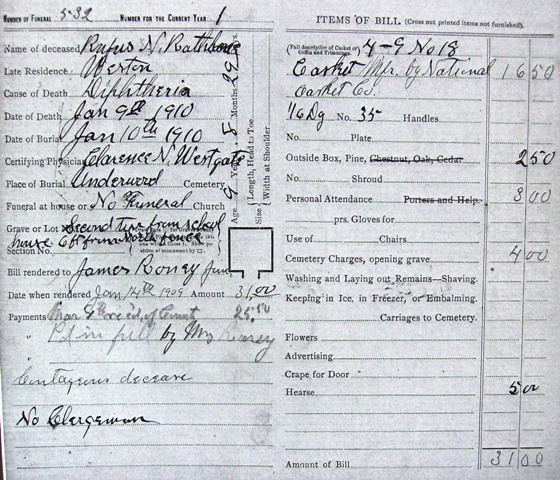 NUMBER OF FUNERAL 532 NUMBER FOR THE CURRENT YEAR 1
Name of deceased Rufus N. Rathbone
Late Residence Weston
Cause of Death Diphtheria
Date of Death Jan 9th 1910
Date of Burial Jan 10th 1910
Certifying Physician Clarence N. Westgate
Place of Burial Underwood Cemetery
Funeral at house or No Funeral Church
Grave or Lot Second tier from school
house 6 ft from North fence
Section No.
Bill rendered to James Roney
Date when rendered Jan 14th 1909 Amount 31,00
Payments Mar 9 Rec'd, of County 25.50
" Pd in full by Mr Roney
"
Contageous decease
No Clergeman
Age 9 Years 8 Months 29
Size { Length, Head to Toe.
Width at Shoulder
ITEMS OF BILL (Cross out printed items not furnished).
(Full description of Casket or Coffin and Trimmings. 4-9 No 18
Casket Mfr. by National 16 50
Casket Co.
1/6 Dg No. 35 Handles
No. Plate
Outside Box, Pine, Chestnut, Oak, Cedar 2 50
No. Shroud
Personal Attendance Porters and Help 3 00
prs. Gloves for
Use of Chairs
Cemetery Charges, opening grave 4 00
Washing and Laying out Remains—Shaving.
Keeping in Ice, in Freezer, or Embalming.
Carriages to Cemetery.
Flowers
Advertising
Crape for Door
Hearse 5 00
Amount of Bill 31 00